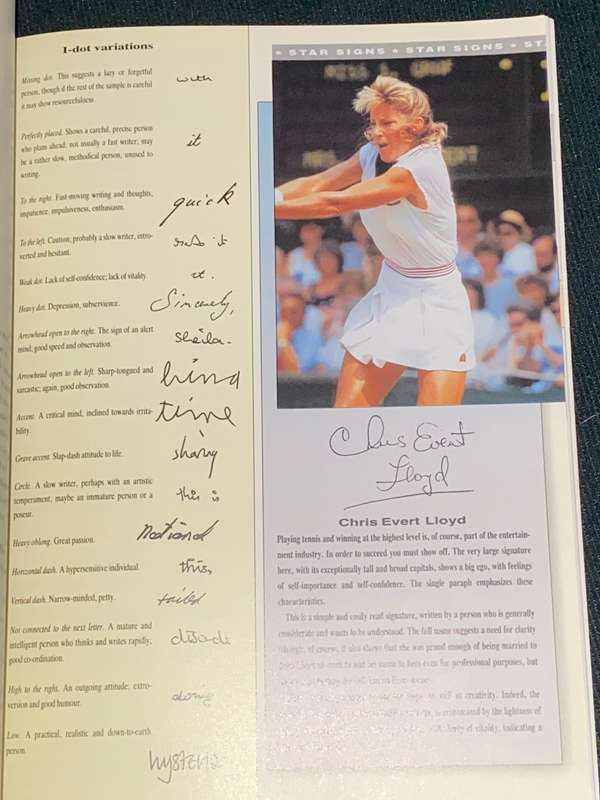 I-dot variations
Missing dot. This suggests a lazy or forgetful
person, though if the rest of the sample is careful
it may show resourcefulness
with
Perfectly placed. Shows a careful, precise person
who plans ahead; not usually a fast writer, may
be a rather slow, methodical person, unused to
writing.
it
To the right. Fast-moving writing and thoughts;
impatience, impulsiveness, enthusiasm.
quick
To the left. Caution; probably a slow writer, intro-
verted and hesitant.
it
Weak dot. Lack of self-confidence; lack of vitality.
it.
Heavy dot. Depression, subservience.
Sincerely,
Arrowhead open to the right. The sign of an alert
mind, good speed and observation.
Sheila.
Arrowhead open to the left. Sharp-tongued and
sarcastic; again, good observation.
hind
Accent. A critical mind, inclined towards irrita-
bility.
time
Grave accent. Slap-dash attitude to life.
sharing
Circle. A slow writer, perhaps with an artistic
temperament, maybe an immature person or a
poseur.
this is
Heavy oblong. Great passion.
National
Horizontal dash. A hypersensitive individual.
this,
Vertical dash. Narrow-minded, petty.
failed
Not connected to the next letter. A mature and
intelligent person who thinks and writes rapidly;
good co-ordination.
High to the right. An outgoing attitude; extro-
version and good humour.
doing
Low. A practical, realistic and down-to-earth
person.
STAR SIGNS ★ STAR SIGNS ★ ST
Chris Evert
Lloyd
Chris Evert Lloyd
Playing tennis and winning at the highest level is, of course, part of the entertain-
ment industry. In order to succeed you must show off. The very large signature
here, with its exceptionally tall and broad capitals, shows a big ego, with feelings
of self-importance and self-confidence. The single paragraph emphasizes these
characteristics.
This is a simple and easily read signature, written by a person who is generally
considerate and wants to be understood. The full name suggests a need for clarity
of course, it also shows that she was proud enough of being married to
to use his name to hers even for professional purposes, but
as well as creativity. Indeed, the
is emphasized by the lightness of
of vitality, indicating a